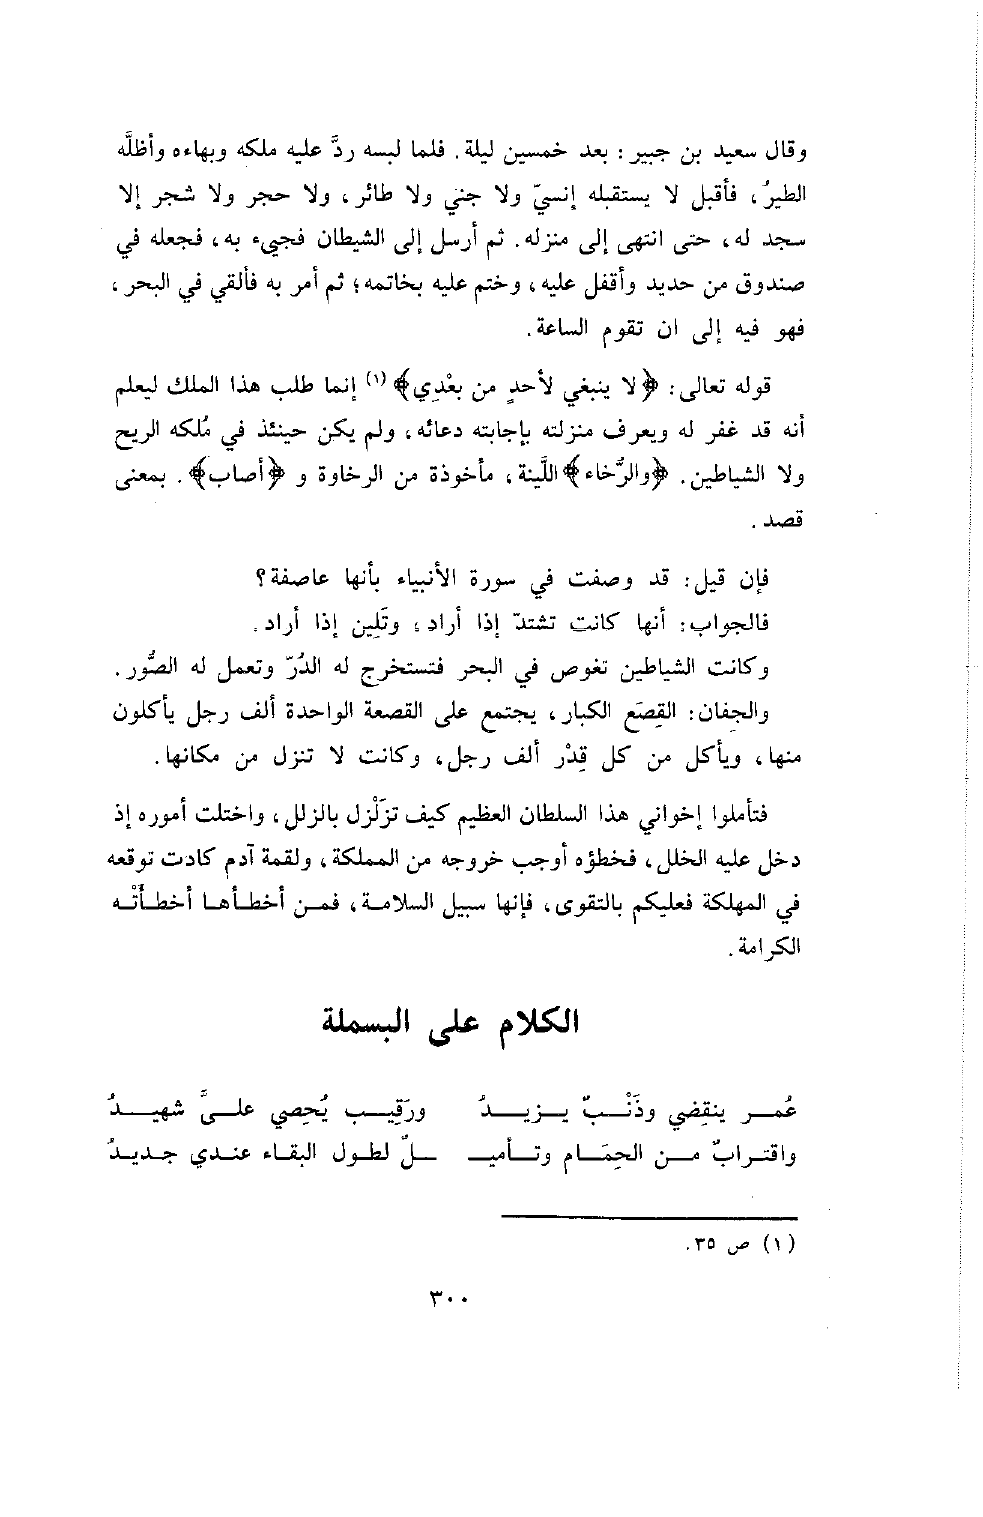 وقال سعيد بن جبير : بعد خمسين ليلة . فلما لبسه ردَّ عليه ملكه وبهاءه وأظلَّه
الطيرُ ، فأقبل لا يستقبله إنسيّ ولا جني ولا طائر ، ولا حجر ولا شجر إلا
سجد له ، حتى انتهى إلى منزله . ثم أرسل إلى الشيطان فجيء به ، فجعله في
صندوق من حديد وأقفل عليه ، وختم عليه بخاتمه ؛ ثم أمر به فألقي في البحر ،
فهو فيه إلى ان تقوم الساعة .
قوله تعالى : ﴿لا ينبغي لأحدٍ من بعْدِي﴾ (١) إنما طلب هذا الملك ليعلم
أنه قد غفر له ويعرف منزلته بإجابته دعائه ، ولم يكن حينئذ في مُلكه الريح
ولا الشياطين . ﴿والرُّخاء﴾ اللَّينة ، مأخوذة من الرخاوة و ﴿أصاب﴾ . بمعنى
قصد .
فإن قيل : قد وصفت في سورة الأنبياء بأنها عاصفة ؟
فالجواب : أنها كانت تشتدّ إذا أراد ، وتَلِين إذا أراد .
وكانت الشياطين تغوص في البحر فتستخرج له الدُرّ وتعمل له الصُّور .
والجفان : القِصَع الكبار ، يجتمع على القصعة الواحدة ألف رجل يأكلون
منها ، ويأكل من كل قِدْر ألف رجل ، وكانت لا تنزل من مكانها .
فتأملوا إخواني هذا السلطان العظيم كيف تزَلْزل بالزلل ، واختلت أموره إذ
دخل عليه الخلل ، فخطؤه أوجب خروجه من المملكة ، ولقمة آدم كادت توقعه
في المهلكة فعليكم بالتقوى ، فإنها سبيل السلامة ، فمن أخطأها أخطأتْه
الكرامة .
الكلام على البسملة
عُمر ينقضي وذَنْبٌ يزيدُ ورَقِيب يُحصِي عليَّ شهيدُ
واقترابٌ من الحِمَام وتأميـ ـلٌ لطول البقاء عندي جديدُ
(١) ص ٣٥ .
٣٠٠